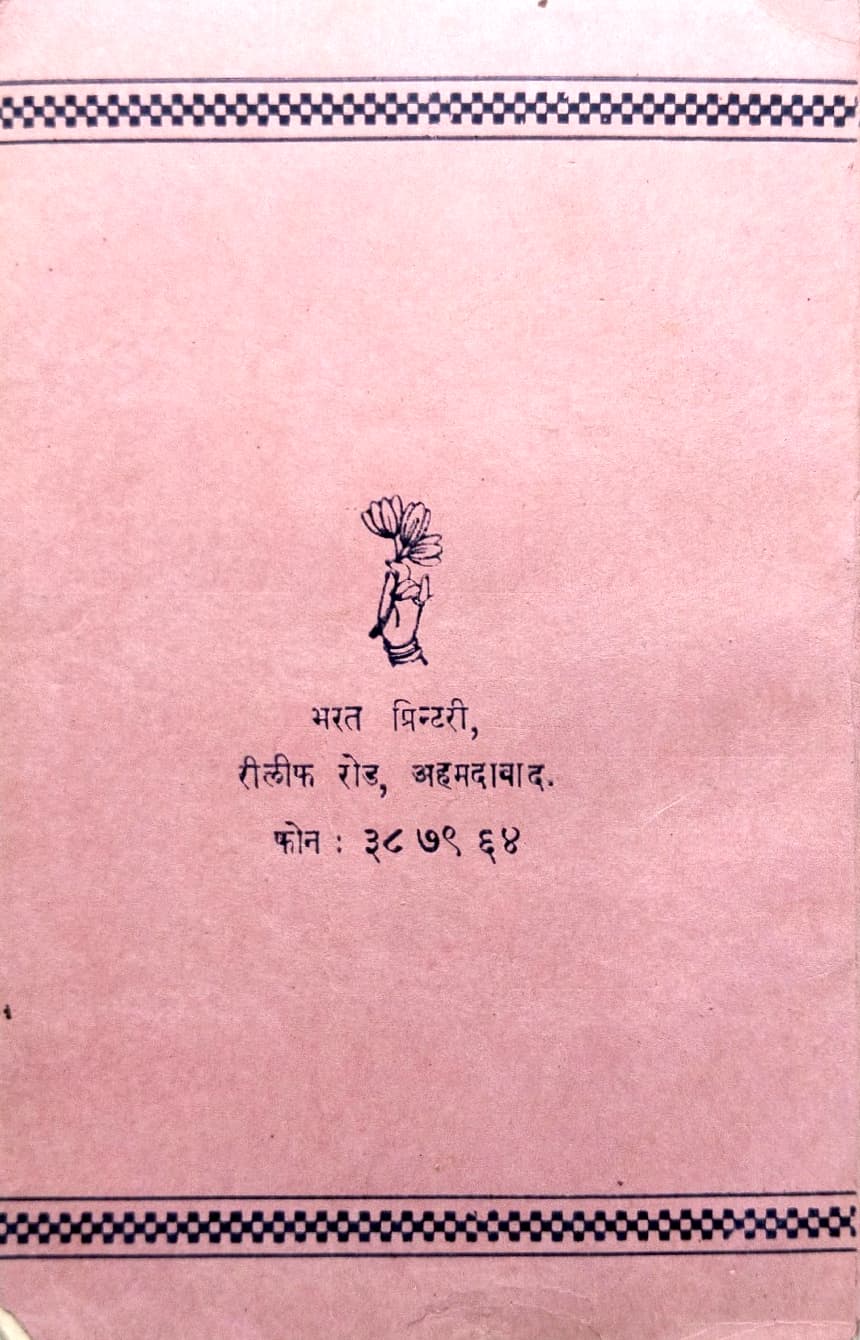 भरत प्रिन्टरी,
रीलीफ रोड, अहमदाबाद.
फोन : ३८ ७९ ६४